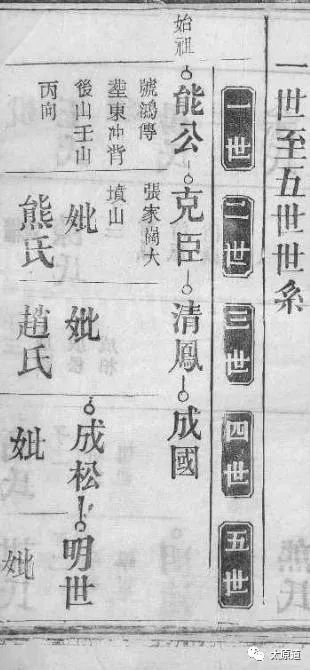 一世至五世世系
一世
二世
三世
四世
五世
始祖
能公
克臣
清鳳
成國
號鴻傳
塟東冲背
後山壬山
丙向
張家崗大
墳山
妣
熊氏
妣
趙氏
成松
明世
妣
妣
太原道